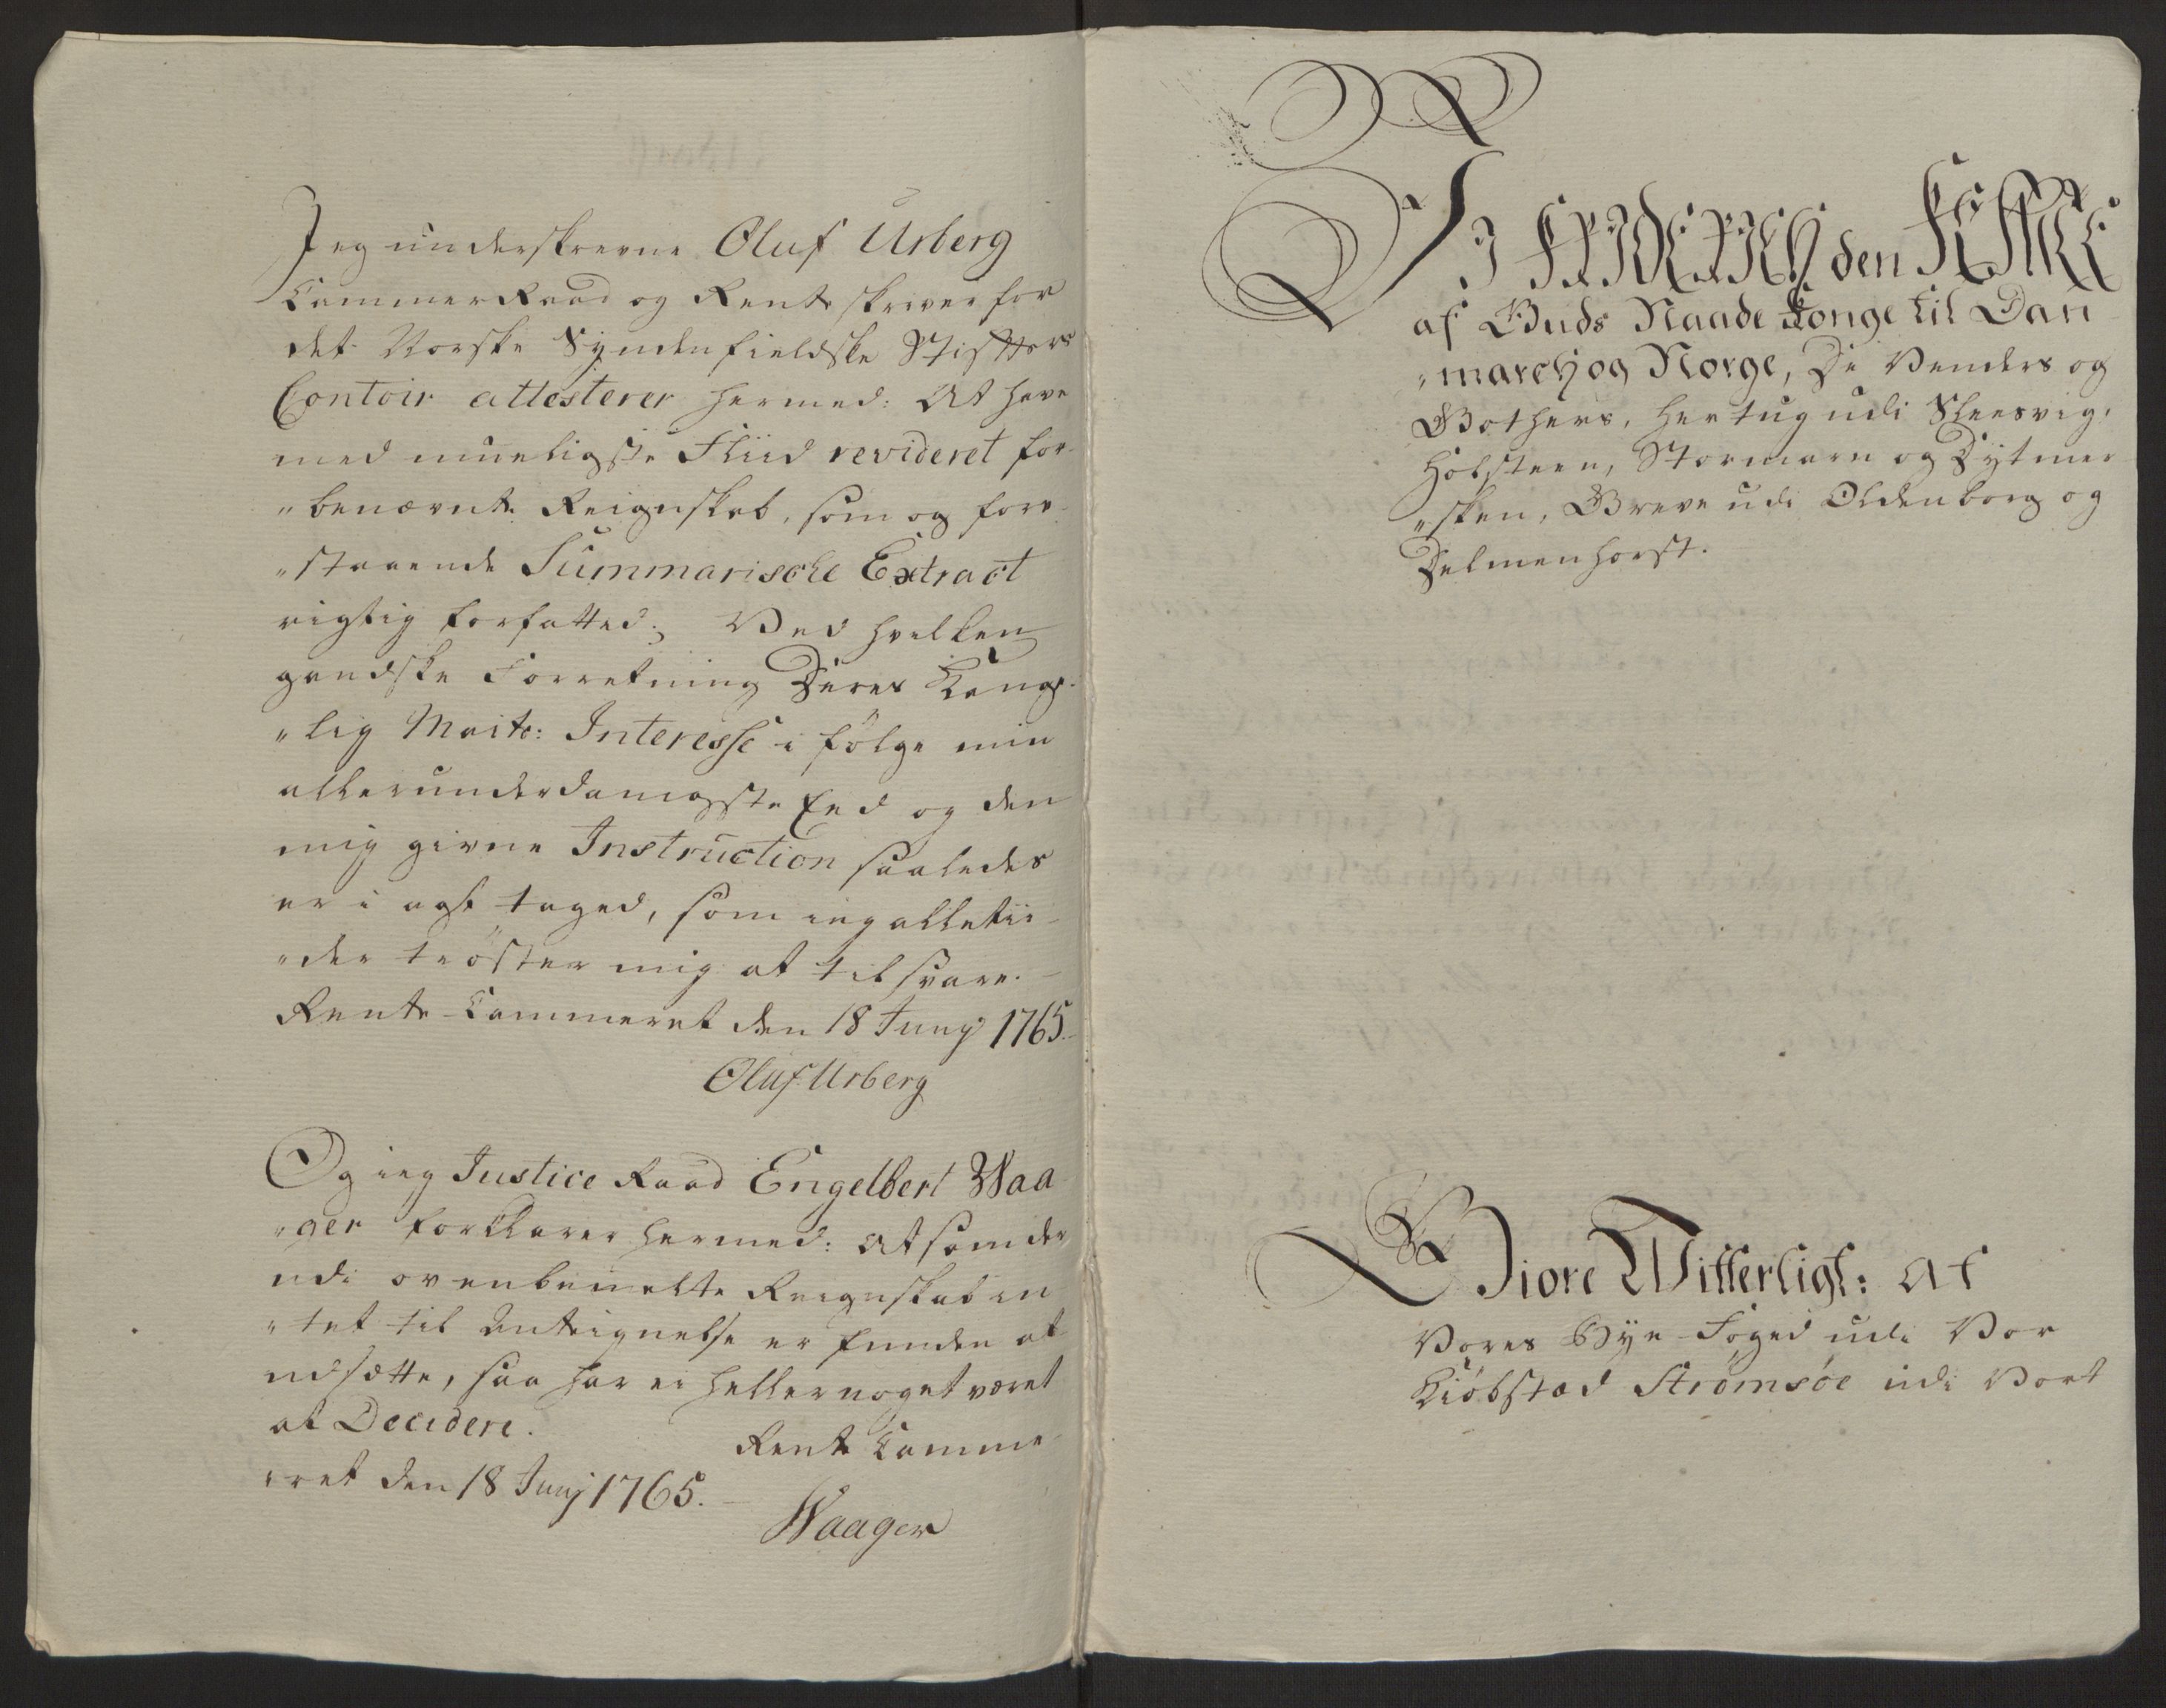 Jeg underskrevne Oluf Urberg
CammerRaad og Renteskriver for
det Norske Syndenfieldske Stifters
Contoir attesterer hermed: At have
med mueligste Fliid revideret for-
„benævnte Reignskab, som og for-
„staaende Summarische Extract
rigtig forfatted; Ved hvilken
gandske Forretning Deres Konge-
„lig Maits: Interesse i følge min
allerunderdanigste Eed og den
mig givne Instruction saaledes
er i agt taged, som ieg alletii-
„der trøster mig at tilsvare.
Rente-Cammeret den 18 Junij 1765.
Oluf Urberg
Og ieg Justice Raad Engelbert Waa
„ger forklarer hermed: At som der
udi ovenbemelte Reignskab in
„tet til Antegnelse er funden at
udsætte, saa har ei heller noget været
at Decidere.
Rente Camme-
„ret den 18 Junj 1765.
Waager
VI FRIDERICH den FEMTE
af Guds Naade Konge til Dan
„march og Norge, De Venders og
Gothers, Hertug udi Sleesvig,
Holsteen, Stormarn og Dytmer
„sken, Greve udi Oldenborg og
Delmenhorst.
Giøre Witterligt: At
Vores Bye-Foged udi Vor
Kiøbstæd Strømsøe udi Vort